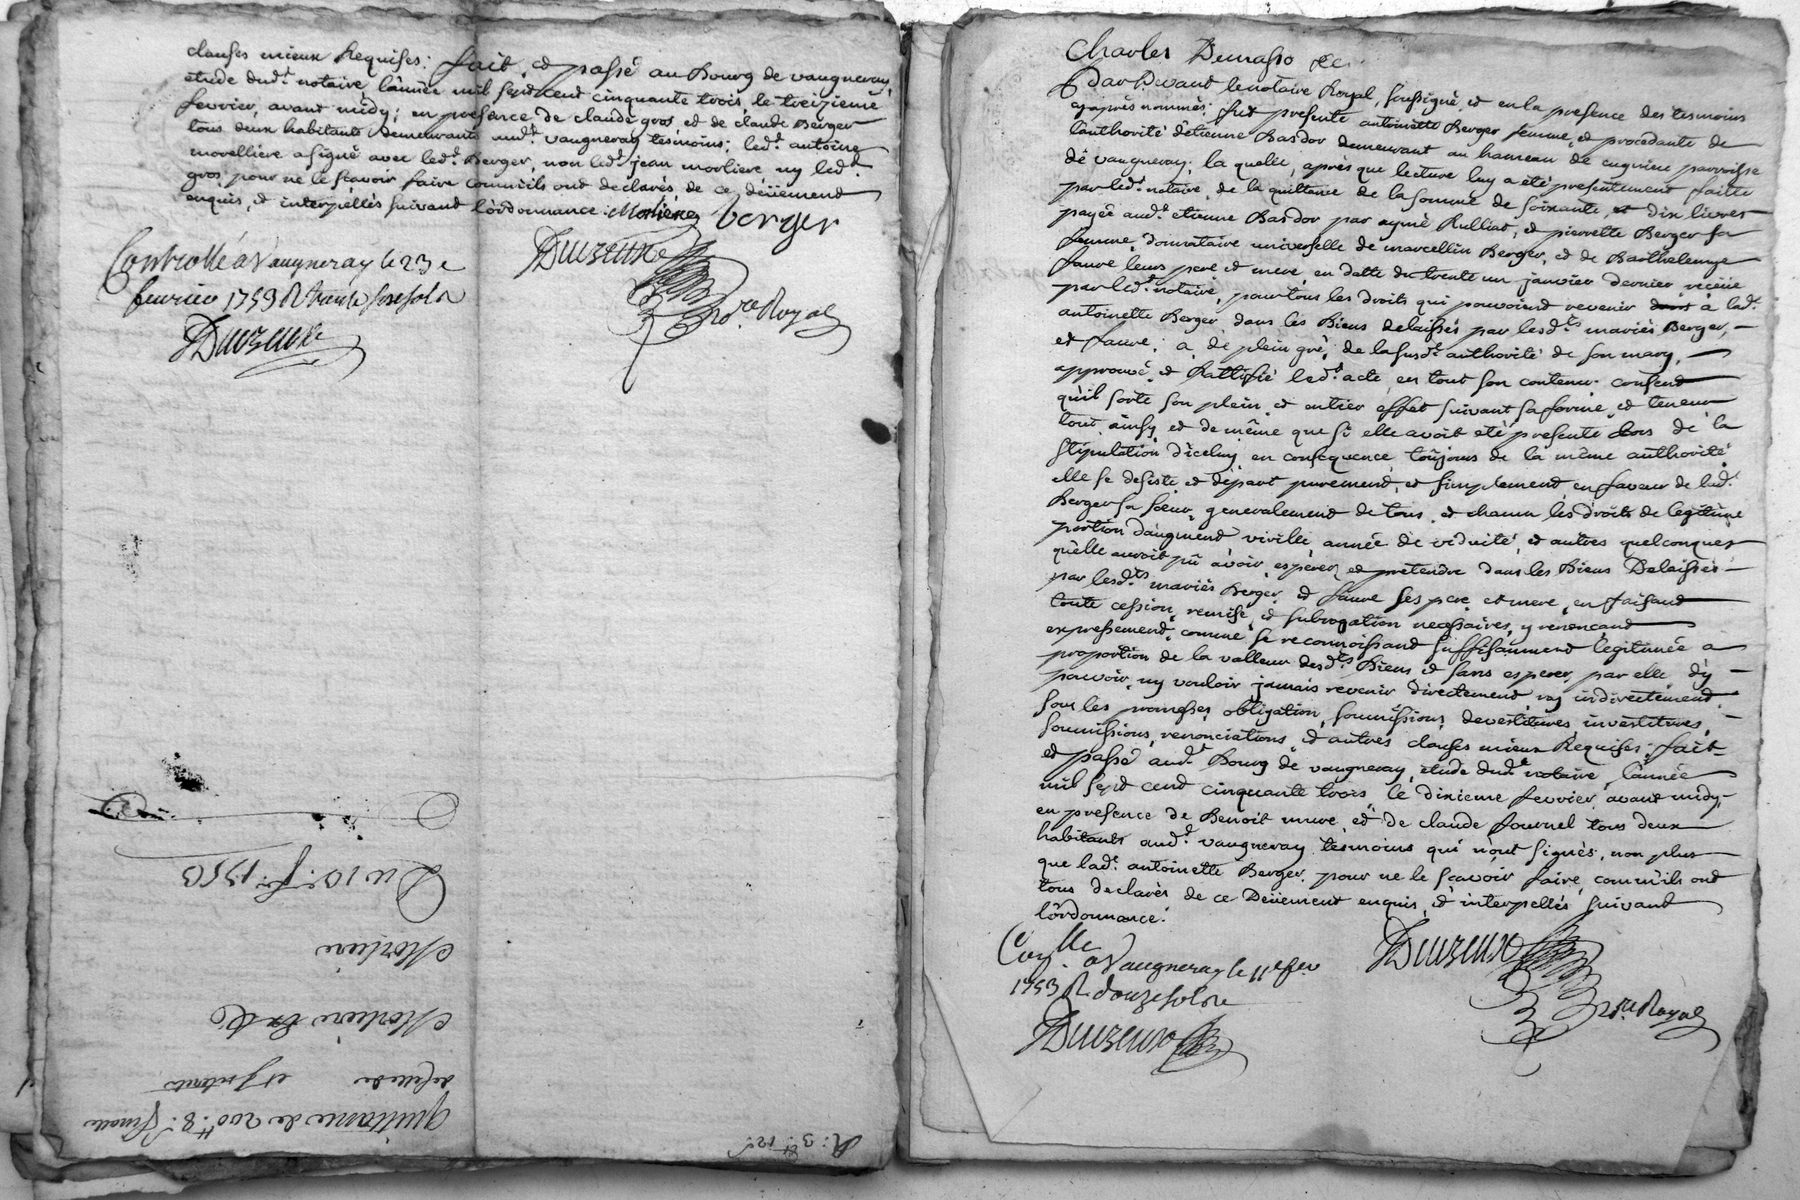 clauses mieux Requises: fait, et passé au Bourg de vaugneray,
etude dud.t notaire, l'année mil sept cent cinquante trois, le treizieme
fevrier, avant midy; en presence de claude gros, et de claude Berger
tous deux habitants demeurants aud.t vaugneray tesmoins; led.t antoine
morelliere a signé avec led.t Berger, non led.t jean morliere, ny led.t
gros, pour ne le sçavoir faire comm'ils ont declarés de ce, deüement
enquis, et interpellés suivant l'ordonnance: Morliere berger
Controllé à Vaugneray le 23 e
fevrier 1753 R trente six sols
Not.re Royal
Du 10.e f.er 1753
Morliere
Morliere
quittance de 200.tt 8.s
R: 3.tt 12.s
Charles Demasso &c.
Pardevant le notaire Royal, soussigné, et en la presence des tesmoins
cy après nommés: fut presente antoinette Berger femme, et procedante de
l'authorité d'étienne Basdor demeurant au hameau de parroisse
de vaugneray; la quelle, après que lecture luy a été presentement faitte
par led.t notaire, de la quittance de la somme de soixante, et dix livres
payée aud.t etienne Basdor par aymé Rulliat, et pierrette Berger sa
femme, donnataire universelle de marcellin Berger, et de Barthelemye
faure leurs pere et mere, en datte du trente un janvier dernier receüe
par led.t notaire, pour tous les droits qui pouvoient revenir à lad.t
antoinette Berger, dans les Biens delaissés par lesd.ts mariés Berger,
et faure; a, de plein gré, de la susd.t authorité de son mary,
approuvé, et Rattifié led.t acte, en tout son contenu. consent
qu'il sorte son plein, et entier effet suivant sa forme, et teneur
tout ainsy, et de même que si elle avoit été presente lors de la
stipulation d'iceluy, en consequence toujours de la même authorité
elle se desiste, et départ purement, et simplement, en faveur de lad.t
Berger sa sœur, generalement de tous, et chacun les droits de legitime
portion d'augment virille, année de viduité, et autres quelconques
qu'elle auroit pû avoir, esperer, et pretendre dans les Biens Delaissés
par lesd.ts mariés Berger, et faure ses pere, et mere, en faisant
toute cession, remise, et subrogation necessaires, y renoncant
expressement, comme se reconnoissant suffisamment legitimée a
proportion de la valleur desd.ts Biens, et sans esperer, par elle, d'y
pouvoir, ny vouloir jamais revenir directement, ny indirectement,
sous les promesses, obligation, soumissions, devestitures, investitures,
soumissions, renonciations, et autres clauses mieux Requises: fait
et passé aud.t Bourg de vaugneray, etude dud.t notaire, l'année
mil sept cent cinquante trois, le dixieme fevrier, avant midy;
en presence de Benoit mure, et de claude fournel tous deux
habitants aud.t vaugneray tesmoins qui n'ont signés, non plus
que lad.t antoinette Berger, pour ne le sçavoir faire, comm'ils ont
tous declarés de ce Deüement enquis, et interpellés suivant
l'ordonnance.
Con.lle à Vaugneray le 11.e fev.
1753 R douze sols
Not.re Royal